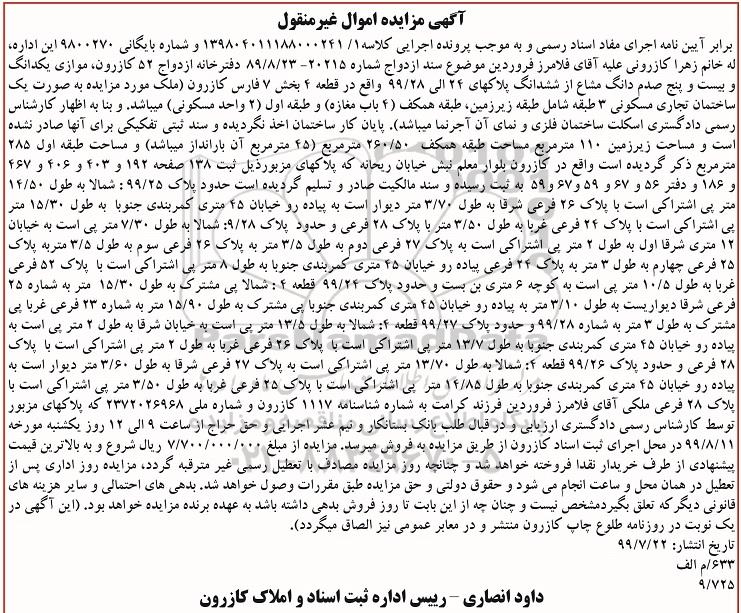 آگهی مزایده اموال غیرمنقول
برابر آیین نامه اجرای مفاد اسناد رسمی و به موجب پرونده اجرایی کلاسه۱/ ۱۳۹۸۰۴۰۱۱۱۸۸۰۰۰۲۴۱ و شماره بایگانی ۹۸۰۰۲۷۰ این اداره،
له خانم زهرا کازرونی علیه آقای فلامرز فروردین موضوع سند ازدواج شماره ۲۰۲۱۵- ۸۹/۸/۲۳ دفترخانه ازدواج ۵۲ کازرون، موازی یکدانگ
و بیست و پنج صدم دانگ مشاع از ششدانگ پلاکهای ۲۴ الی ۹۹/۲۸ واقع در قطعه ۴ بخش ۷ فارس کازرون (ملک مورد مزایده به صورت یک
ساختمان تجاری مسکونی ۳ طبقه شامل طبقه زیرزمین، طبقه همکف (۴ باب مغازه) و طبقه اول (۲ واحد مسکونی) میباشد. و بنا به اظهار کارشناس
رسمی دادگستری اسکلت ساختمان فلزی و نمای آن آجرنما میباشد). پایان کار ساختمان اخذ نگردیده و سند ثبتی تفکیکی برای آنها صادر نشده
است و مساحت زیرزمین ۱۱۰ مترمربع مساحت طبقه همکف ۲۶۰/۵۰ مترمربع (۴۵ مترمربع آن بارانداز میباشد) و مساحت طبقه اول ۲۸۵
مترمربع ذکر گردیده است واقع در کازرون بلوار معلم نبش خیابان ریحانه که پلاکهای مزبورذیل ثبت ۱۳۸ صفحه ۱۹۲ و ۴۰۳ و ۴۰۶ و ۴۶۷
و ۱۸۶ و دفتر ۵۶ و ۶۷ و ۵۹ و ۶۷ و ۵۹ به ثبت رسیده و سند مالکیت صادر و تسلیم گردیده است حدود پلاک ۹۹/۲۵ : شمالا به طول ۱۴/۵۰
متر پی اشتراکی است با پلاک ۲۶ فرعی شرقا به طول ۳/۷۰ متر دیوار است به پیاده رو خیابان ۴۵ متری کمربندی جنوبا به طول ۱۵/۳۰ متر
پی اشتراکی است با پلاک ۲۴ فرعی غربا به طول ۳/۵۰ متر با پلاک ۲۸ فرعی و حدود پلاک ۹/۲۸: شمالا به طول ۷/۳۰ متر پی است به خیابان
۱۲ متری شرقا اول به طول ۲ متر پی اشتراکی است به پلاک ۲۷ فرعی دوم به طول ۳/۵ متر به پلاک ۲۶ فرعی سوم به طول ۳/۵ متربه پلاک
۲۵ فرعی چهارم به طول ۳ متر به پلاک ۲۴ فرعی پیاده رو خیابان ۴۵ متری کمربندی جنوبا به طول ۸ متر پی اشتراکی است با پلاک ۵۲ فرعی
غربا به طول ۱۰/۵ متر پی است به کوچه ۶ متری بن بست و حدود پلاک ۹۹/۲۴ قطعه ۴ : شمالا پی مشترک به طول ۱۵/۳۰ متر به شماره ۲۵
فرعی شرقا دیواریست به طول ۳/۱۰ متر به پیاده رو خیابان ۴۵ متری کمربندی جنوبا پی مشترک به طول ۱۵/۹۰ متر به شماره ۲۳ فرعی غربا پی
مشترک به طول ۳ متر به شماره ۹۹/۲۸ و حدود پلاک ۹۹/۲۷ قطعه ۴: شمالا به طول ۱۳/۵ متر پی است به خیابان شرقا به طول ۲ متر پی است به
پیاده رو خیابان ۴۵ متری کمربندی جنوبا به طول ۱۳/۷۰ متر پی اشتراکی است با پلاک ۲۶ فرعی غربا به طول ۲ متر پی اشتراکی است با پلاک
۲۸ فرعی و حدود پلاک ۹۹/۲۶ قطعه ۴: شمالا به طول ۱۳/۷۰ متر پی اشتراکی است به پلاک ۲۷ فرعی شرقا به طول ۳/۶۰ متر دیوار است به
پیاده رو خیابان ۴۵ متری کمربندی جنوبا به طول ۱۴/۸۵ متر پی اشتراکی است با پلاک ۲۵ فرعی غربا به طول ۳/۵۰ متر پی اشتراکی است با
پلاک ۲۸ فرعی ملکی آقای فلامرز فروردین فرزند کرامت به شماره شناسنامه ۱۱۱۷ کازرون و شماره ملی ۲۳۷۲۰۲۶۹۶۸ که پلاکهای مزبور
توسط کارشناس رسمی دادگستری ارزیابی و در قبال طلب بانک بستانکار و نیم عشر اجرایی و حق حراج از ساعت ۹ الی ۱۲ روز یکشنبه مورخه
۹۹/۸/۱۱ در محل اجرای ثبت اسناد کازرون از طریق مزایده به فروش میرسد. مزایده از مبلغ ۷/۷۰۰/۰۰۰/۰۰۰ ریال شروع و به بالاترین قیمت
پیشنهادی از طرف خریدار نقدا فروخته خواهد شد و چنانچه روز مزایده مصادف با تعطیل رسمی غیر مترقبه گردد، مزایده روز اداری پس از
تعطیل در همان محل و ساعت انجام می شود و حقوق دولتی و حق مزایده طبق مقررات وصول خواهد شد. بدهی های احتمالی و سایر هزینه های
قانونی دیگرکه تعلق بگیردمشخص نیست و چنان چه از این بابت تا روز فروش بدهی داشته باشد به عهده برنده مزایده خواهد بود. (این آگهی در
یک نوبت در روزنامه طلوع چاپ کازرون منتشر و در معابر عمومی نیز الصاق میگردد).
تاریخ انتشار: ۹۹/۷/۲۲
۶۳۳/م الف
۹/۷۲۵
داود انصاری – رییس اداره ثبت اسناد و املاک کازرون